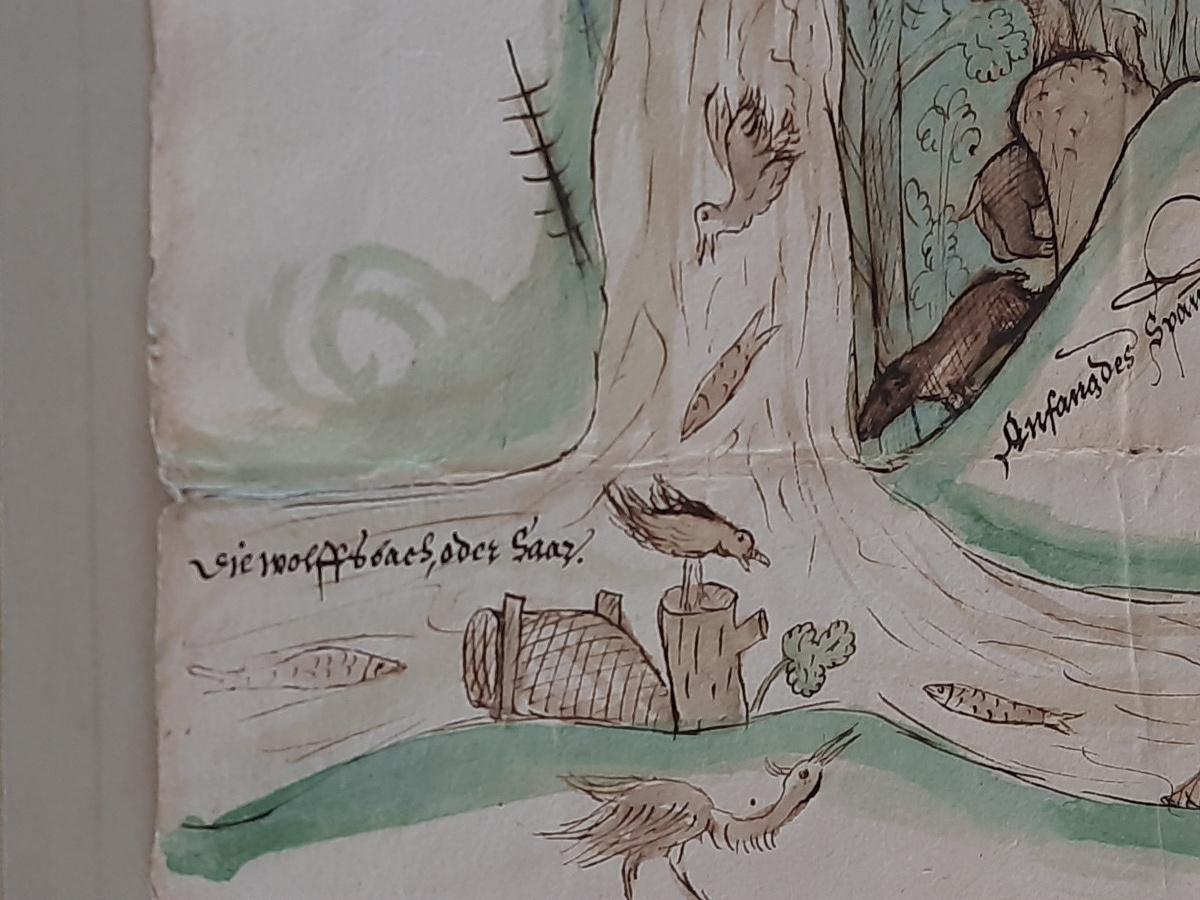 Anfang des Span
Die wolffsbach, oder Saar.